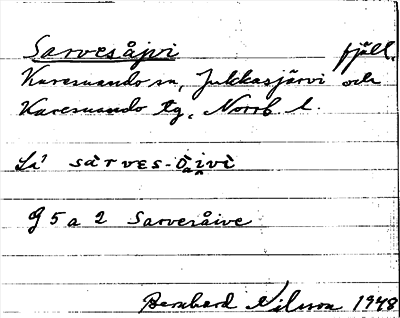 Sarvesåjvi fjäll.
Karesuando sn, Jukkasjärvi och
Karesuando tg, Norrb. l.
Li sàrves-ō̭i̭vè
G 5 a 2 Sarvesåive
Bernhard Nilsson 1948